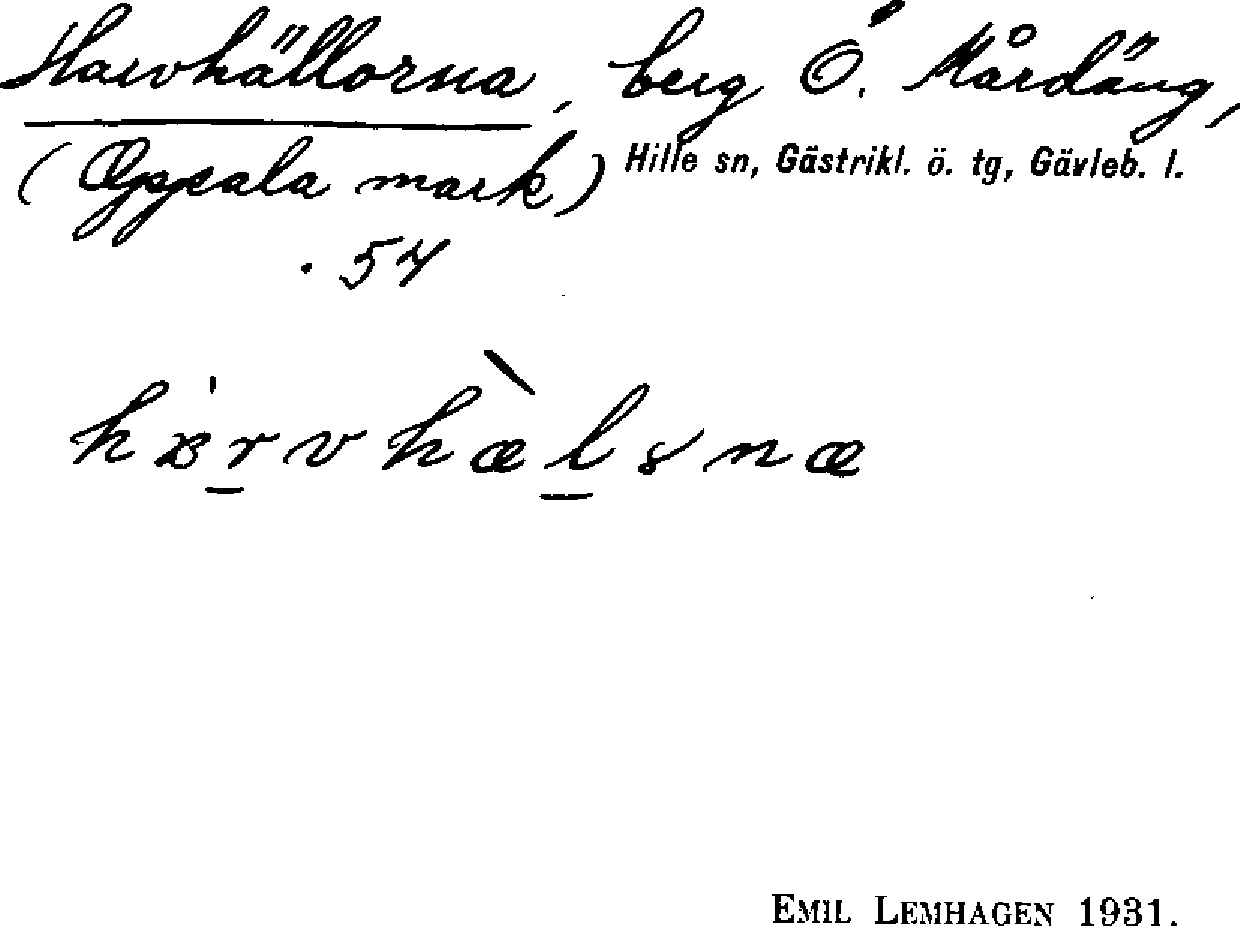 Harvhällorna, berg O. Mårdäng,
(Oppala mark) Hille sn, Gästrikl. ö. tg, Gävleb. l.
. 54
EMIL LEMHAGEN 1931.